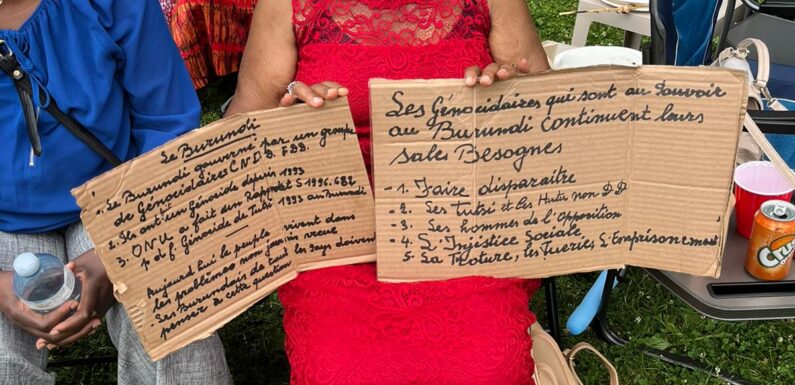 Le Burundi
1. Le Burundi gouverné par un groupe
de Génocidaires C N D D. FDD.
2. Ils ont un Génocide depuis 1993
3. ONU a fait un Rapport S 1996. 682
Génocide de Tutsi 1993 au Burundi
Aujourd'hui le peuple vivent dans
les problèmes non jamais
- Les Burundais de tout les pays doivent
penser à cette question
Les Génocidaires qui sont au Pouvoir
au Burundi Continuent leurs
Sales Besognes
- 1. Faire disparaitre
- 2. Les Tutsi et les Hutu non D.D
- 3. Les hommes de l'Opposition
- 4. L'Injustice Sociale
5. La Torture, les Tueries L'Emprisonement
Crush